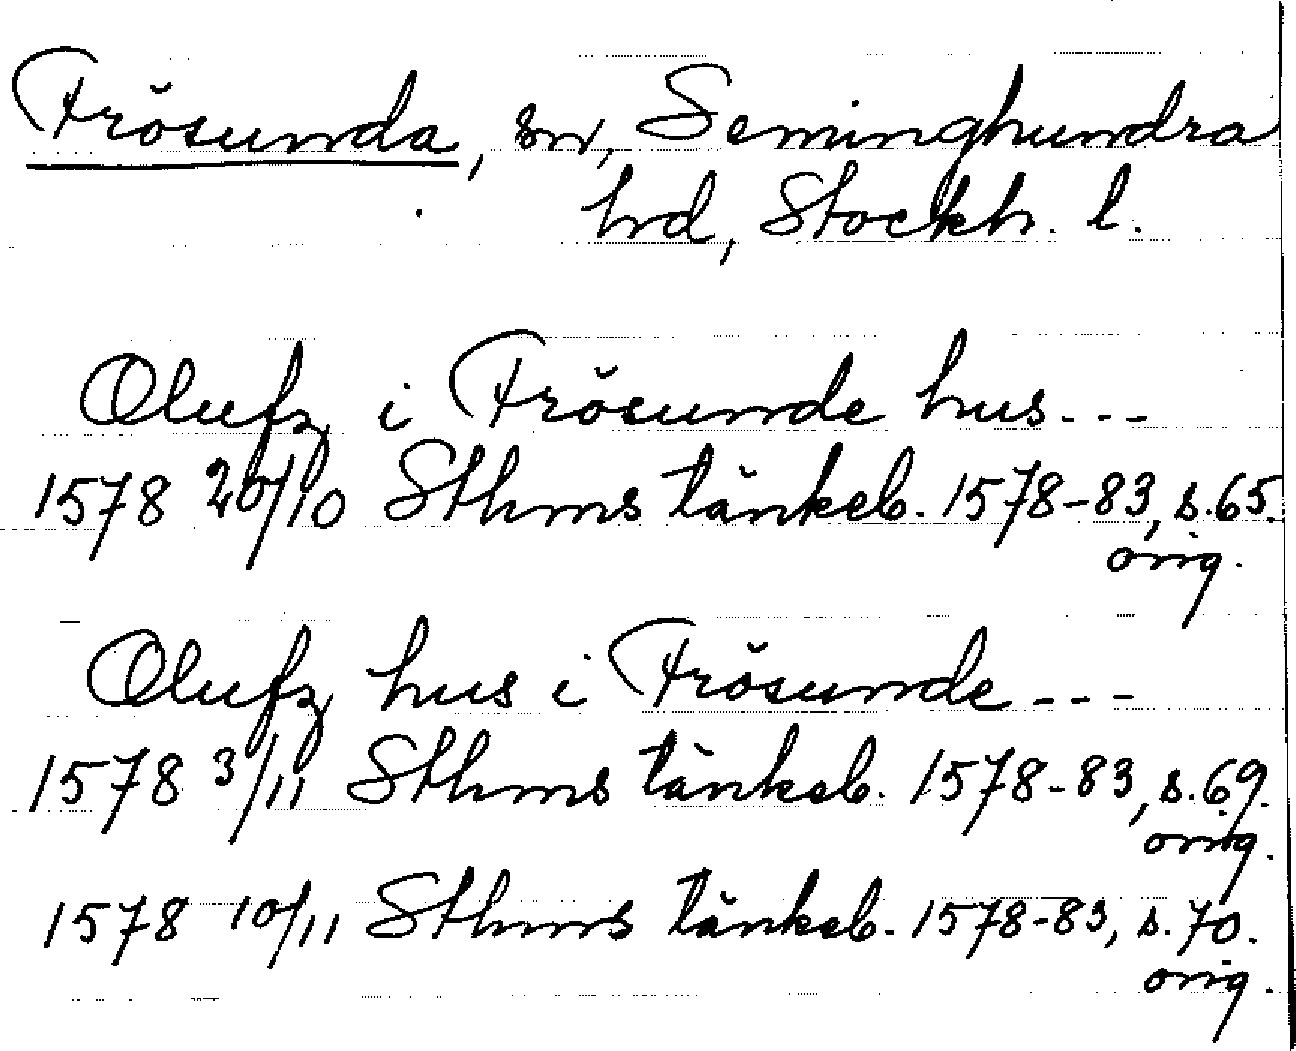 Frösunda, sn, Seminghundra
hrd, Stockh. l.
Olufz i Frösunde hus---
1578 20/10 Sthms tänkeb. 1578-83, s.65.
orig.
Olufz hus i Frösunde---
1578 3/11 Sthms tänkeb. 1578-83, s.69.
orig.
1578 10/11 Sthms tänkeb. 1578-83, s.70.
orig.